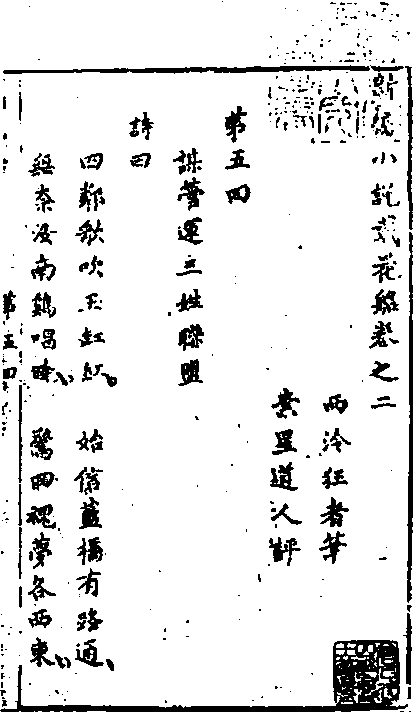 新小說載花船卷之二
西泠狂者筆
素星道人評
第五回
謀營運三姓聯盟
詩曰
四鄰歌吹玉缸紅 始信藍橋有路通
無奈汝南鷄唱曉 驚回魂夢各西東
第五回